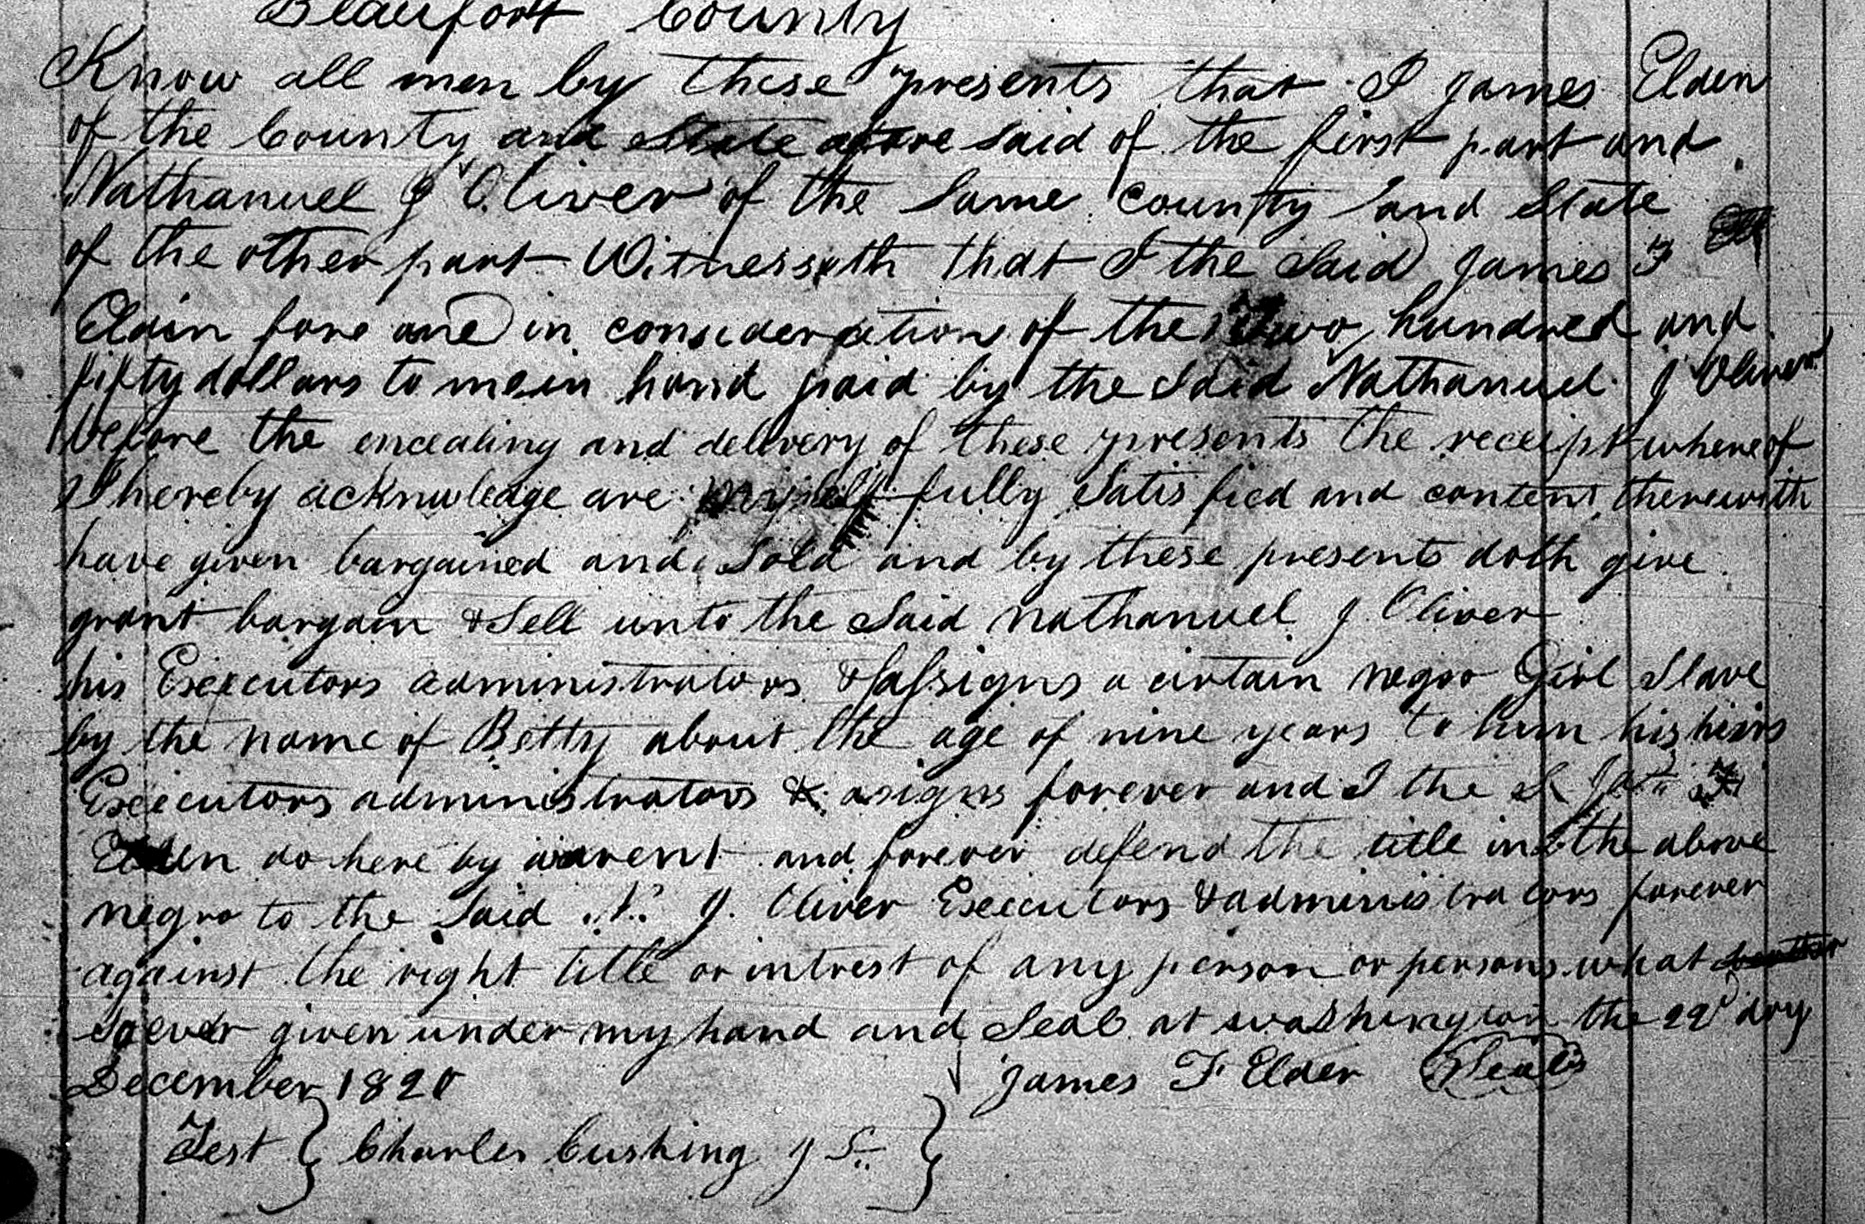 Beaufort County
Know all men by these presents that I James Elden
of the County and State afore said of the first part and
Nathanuel J Oliver of the Same county and State
of the other part Witnesseth that I the Said James F
Eldin fore and in consideration of the Two hundred and
fifty dollars to me in hand paid by the Said Nathanuel J Oliver
before the encealing and delivery of these presents the receipt where of
I hereby acknowledge are myself fully Satis fied and content therewith
have given bargained and Sold and by these presents doth give
grant bargain & Sell unto the Said Nathanuel J. Oliver
his Executors administrators & assigns a cirtain negro Girl Slave
by the name of Betty about the age of nine years to him his heirs
Executors administrators & asigns forever and I the S
Elden do here by warent and forever defend the title in the above
negro to the Said N. J. Oliver Executors & administrators forever
against the right title or intrest of any person or persons what
soever given under my hand and Seal at washington the 22d day
December 1820 James F Elder Seal
Test } Charles Cushing }